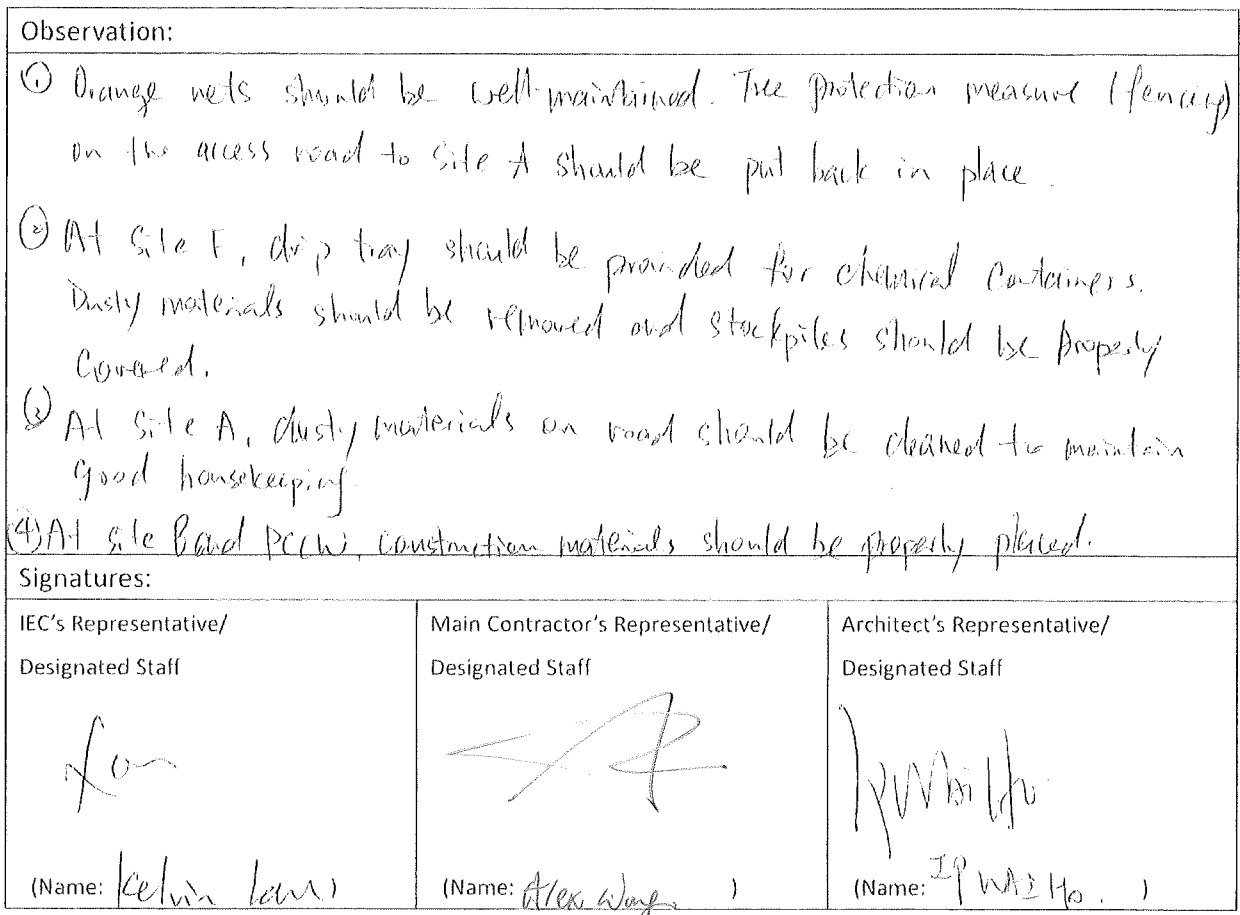 Observation:
① Orange nets should be well-maintained. Tree protection measure (fencing)
on the access road to Site A should be put back in place.
② At Site F, drip tray should be provided for chemical containers.
Dusty materials should be removed and stockpiles should be properly
covered.
③ At Site A, dusty materials on road should be cleaned to maintain
good housekeeping.
④ At site B and PCCW, construction materials should be properly placed.
Signatures:
IEC's Representative/
Designated Staff
(Name: Kelvin Law)
Main Contractor's Representative/
Designated Staff
(Name: Alex Wong )
Architect's Representative/
Designated Staff
Ip Wai Ho
(Name: IP WAI Ho. )